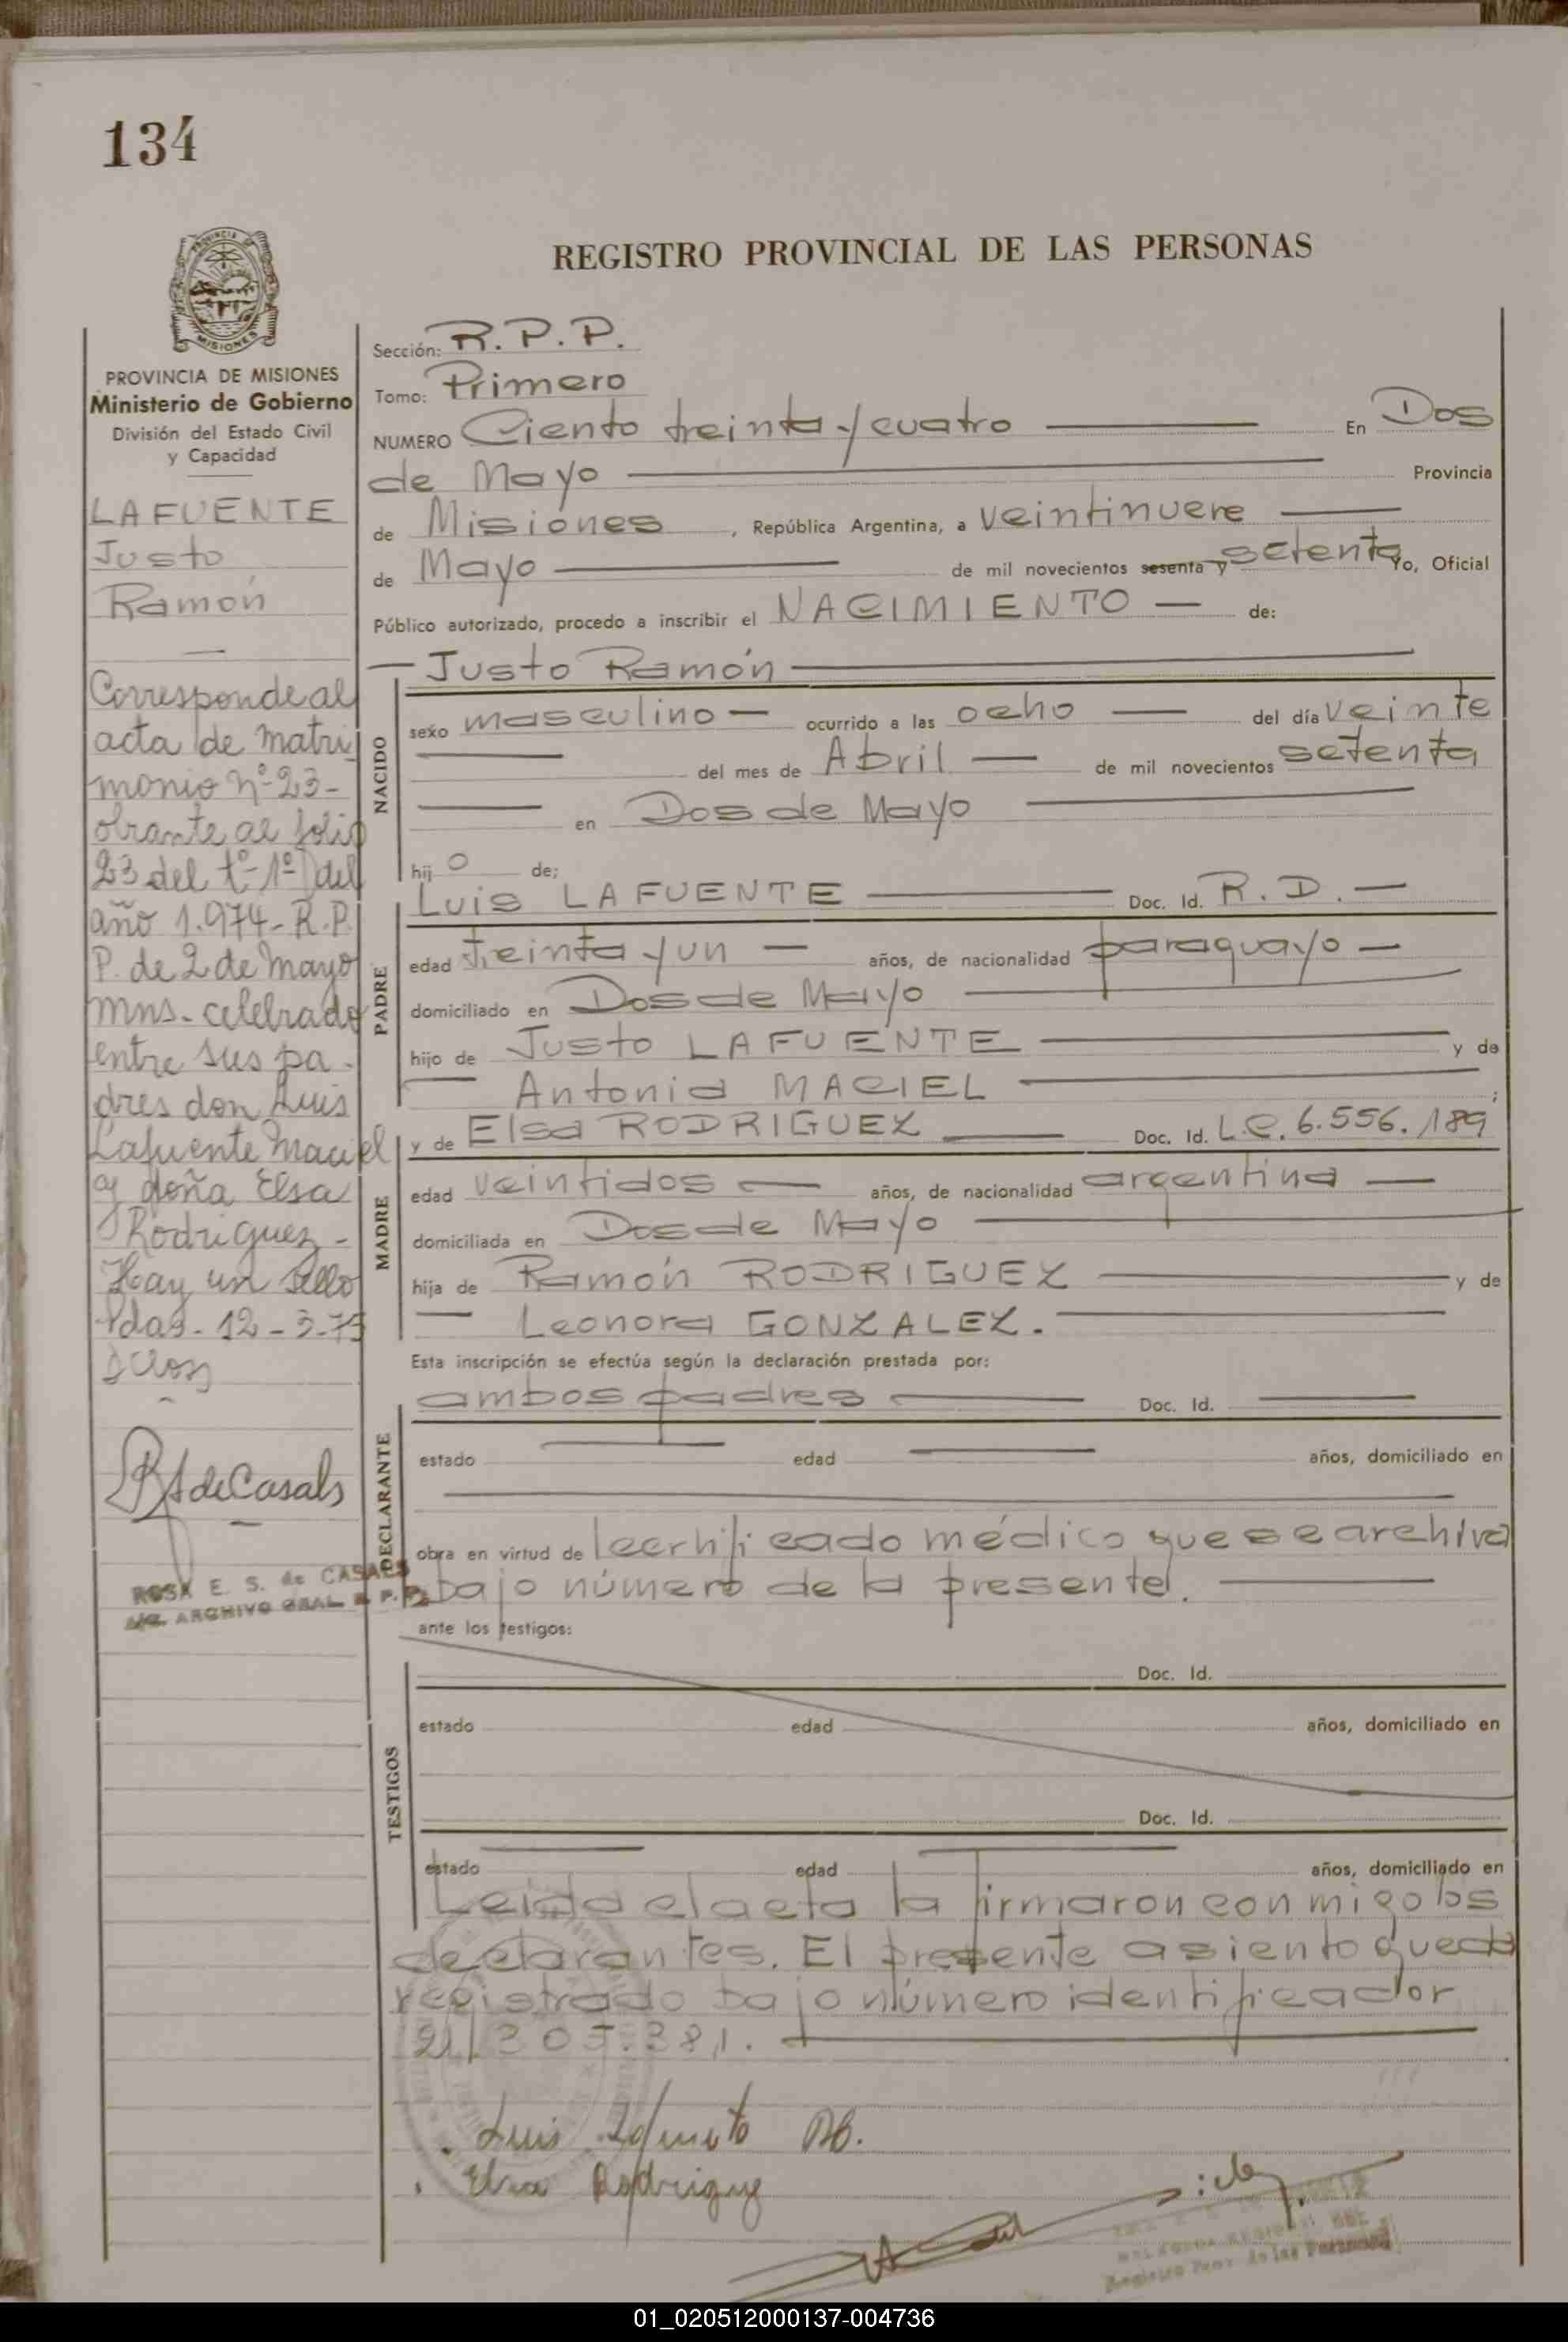 134
REGISTRO PROVINCIAL DE LAS PERSONAS
MISIONES
PROVINCIA DE MISIONES
Ministerio de Gobierno
División del Estado Civil
y Capacidad
LAFUENTE
Justo
Ramón
Corresponde al
acta de matri
monio nº 23-
obrante al folio
23 del tº 1º del
año 1.974- R.P.
P. de 2 de Mayo
Mns- celebrado
entre sus pa-
dres don Luis
Lafuente Maciel
y doña Elsa
Rodriguez-
Hay un sello
Pdas- 12-3-75
RS de Casals
ROSA E. S. de CASALS
ARCHIVO GRAL R. P. P.
Sección: R.P.P.
Tomo: Primero
NUMERO Ciento treinta y cuatro En Dos
de Mayo Provincia
de Misiones, República Argentina, a veintinueve
de Mayo de mil novecientos sesenta y setenta Yo, Oficial
Público autorizado, procedo a inscribir el NACIMIENTO — de:
— Justo Ramón
NACIDO
sexo masculino — ocurrido a las ocho — del día veinte
del mes de Abril — de mil novecientos setenta
en Dos de Mayo
hijo de:
Luis LAFUENTE Doc. Id. R.D. —
PADRE
edad treinta y un — años, de nacionalidad paraguayo —
domiciliado en Dos de Mayo
hijo de Justo LAFUENTE y de
Antonia MACIEL ;
y de Elsa RODRIGUEZ Doc. Id. L.C. 6.556.189
MADRE
edad veintidos — años, de nacionalidad argentina —
domiciliada en Dos de Mayo
hija de Ramón RODRIGUEZ y de
— Leonora GONZALEZ.
Esta inscripción se efectúa según la declaración prestada por:
ambos padres Doc. Id.
DECLARANTE
estado edad años, domiciliado en
obra en virtud de certificado médico que se archiva
bajo número de la presente.
ante los testigos:
TESTIGOS
Doc. Id.
estado edad años, domiciliado en
Doc. Id.
estado edad años, domiciliado en
Leida el acta la firmaron conmigo los
declarantes. El presente asiento queda
registrado bajo número identificador
21.305.381.
Luis Lafuente
Elsa Rodriguez
Registro Prov. de las Personas
01_020512000137-004736